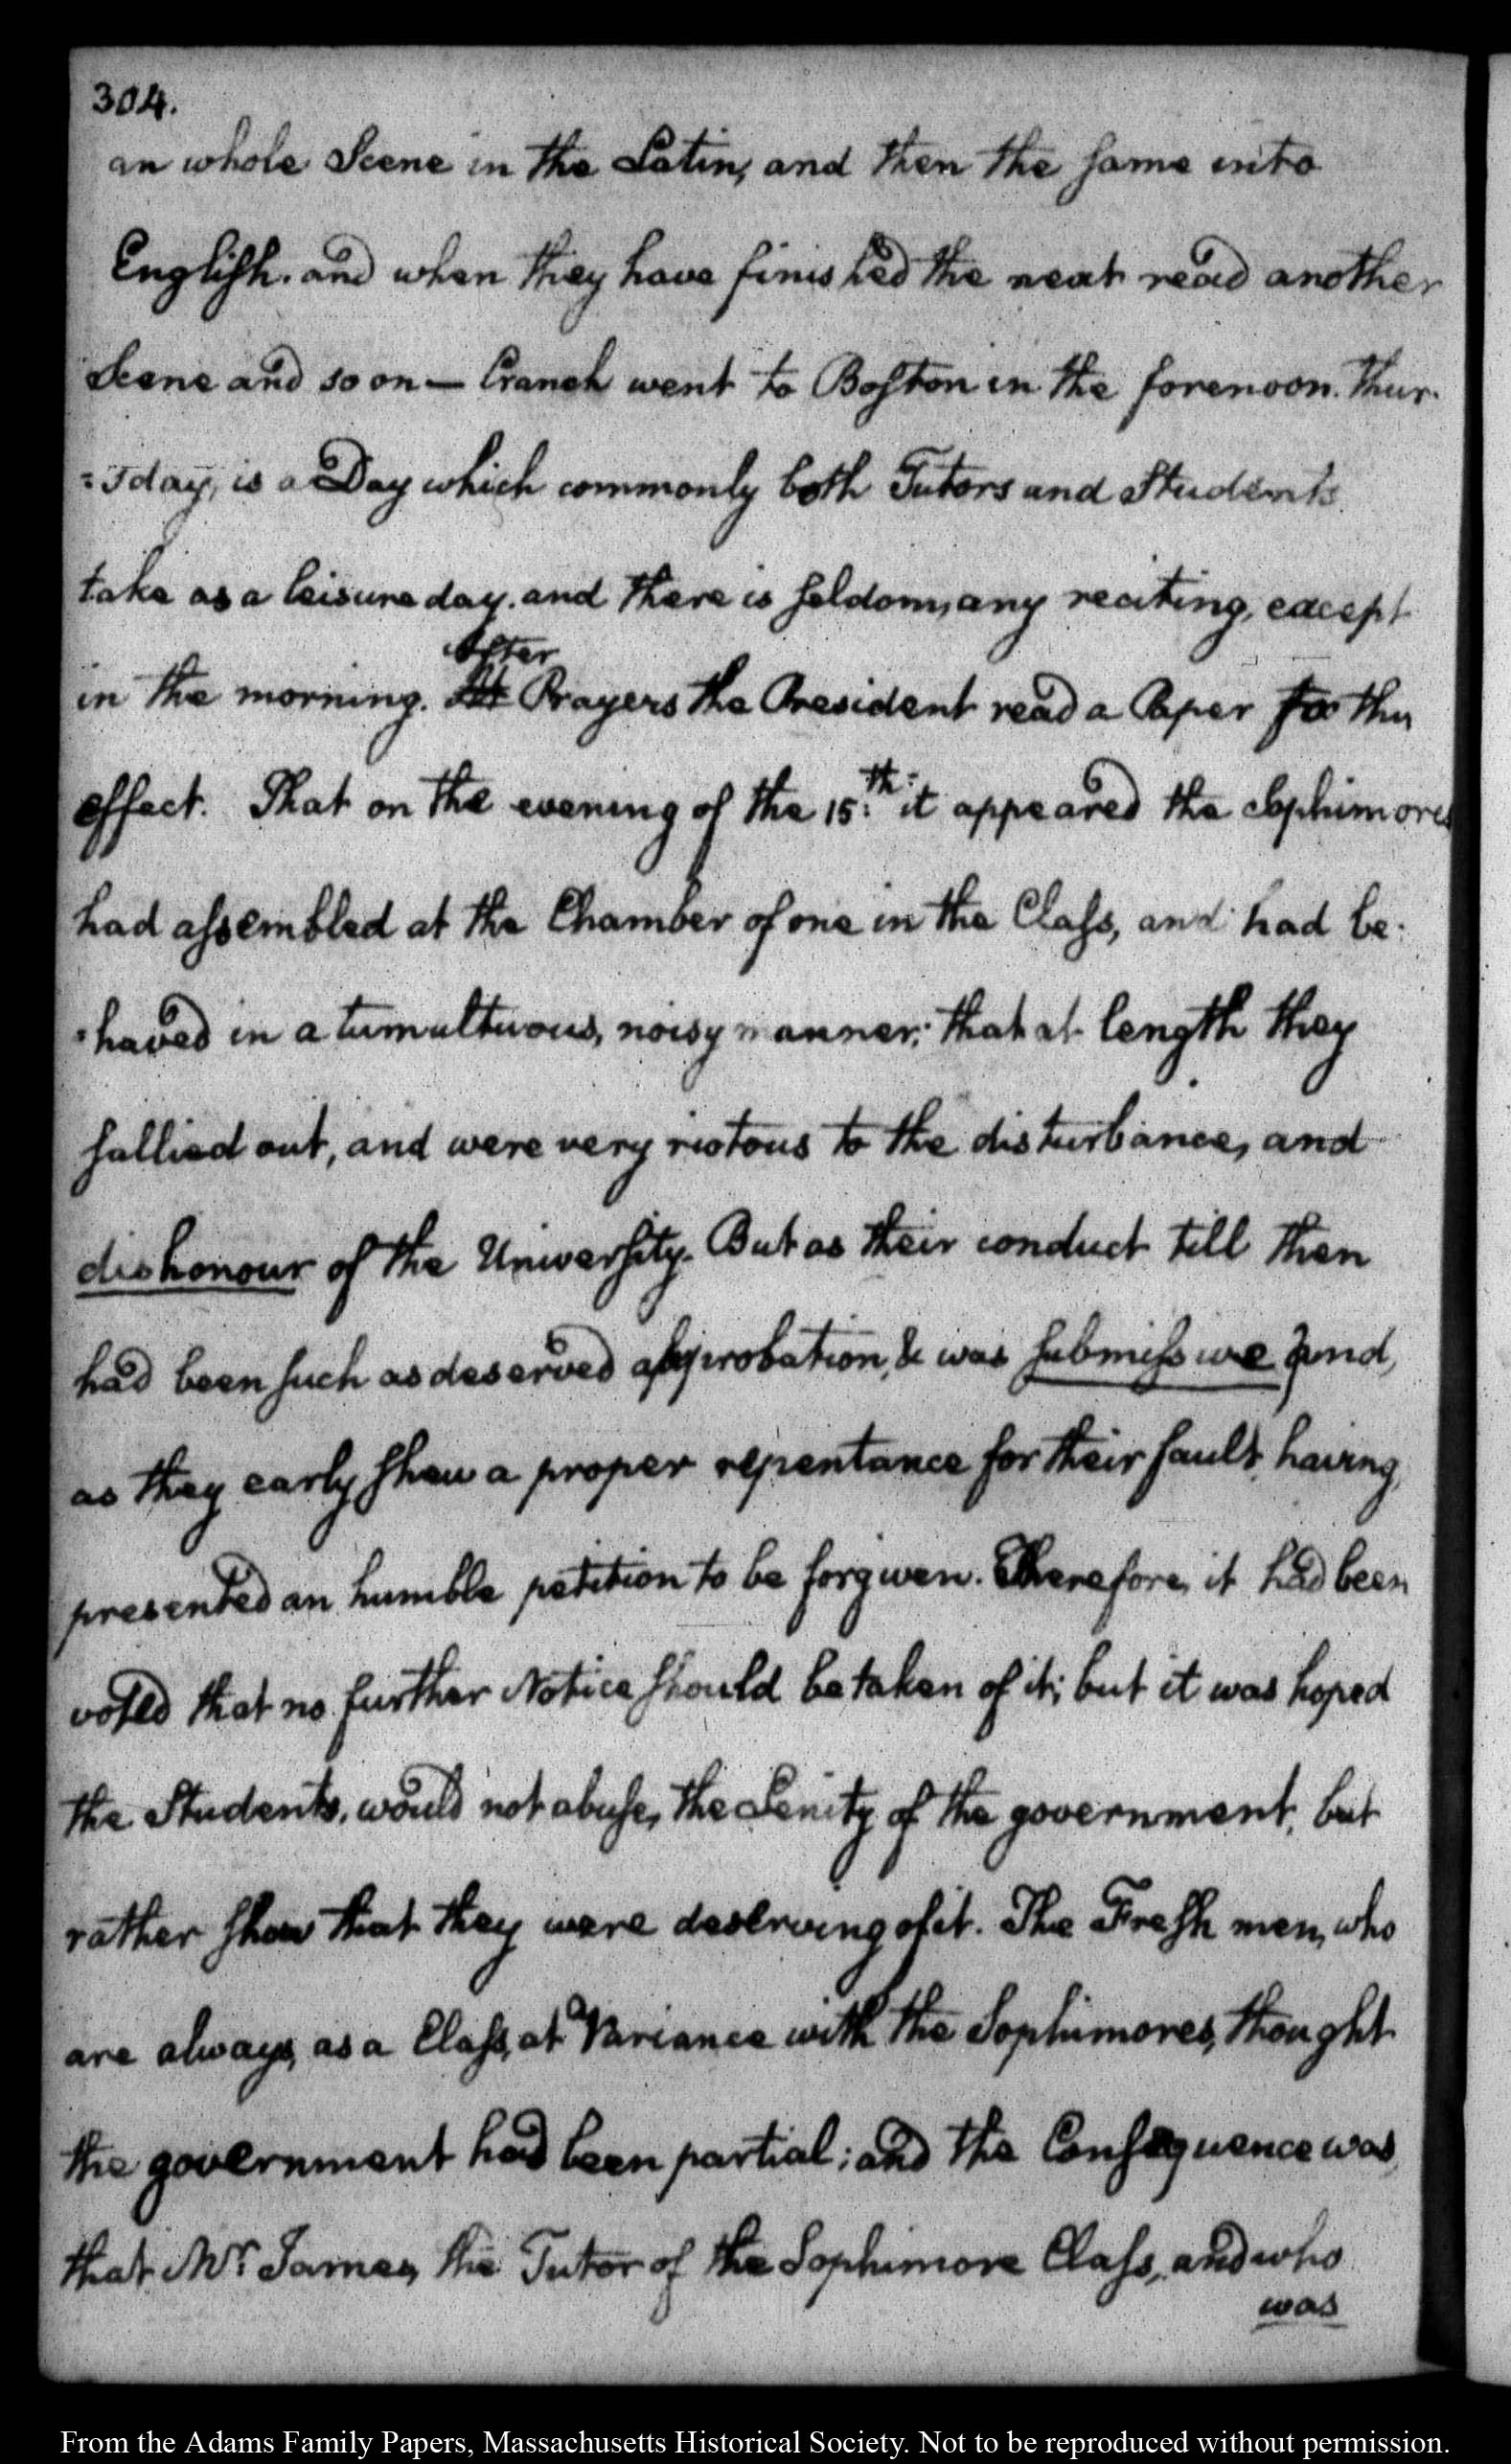 304.
an whole Scene in the Latin, and then the same into
English. and when they have finished the next read another
Scene and so on — Cranch went to Boston in the forenoon. Thur-
=sday, is a Day which commonly both Tutors and Students
take as a leisure day. and there is seldom, any reciting, except
After
in the morning. At Prayers the President read a Paper to this
effect. That on the evening of the 15.th: it appeared the Sophimores
had assembled at the Chamber of one in the Class, and had be-
=haved in a tumultuous, noisy manner; that at length they
sallied out, and were very riotous to the disturbance, and
dishonour of the University. But as their conduct till then
had been such as deserved approbation, & was submissive and,
as they early shew a proper repentance for their fault, having,
presented an humble petition to be forgiven. Therefore, it had been
voted that no further Notice should be taken of it; but it was hoped
the Students, would not abuse, the Lenity of the government, but
rather show that they were deserving of it. The Fresh men, who
are always, as a Class, at Variance with the Sophimores, thought
the government had been partial; and the Consequence was,
that Mr. James, the Tutor of the Sophimore Class, and who
was
From the Adams Family Papers, Massachusetts Historical Society. Not to be reproduced without permission.